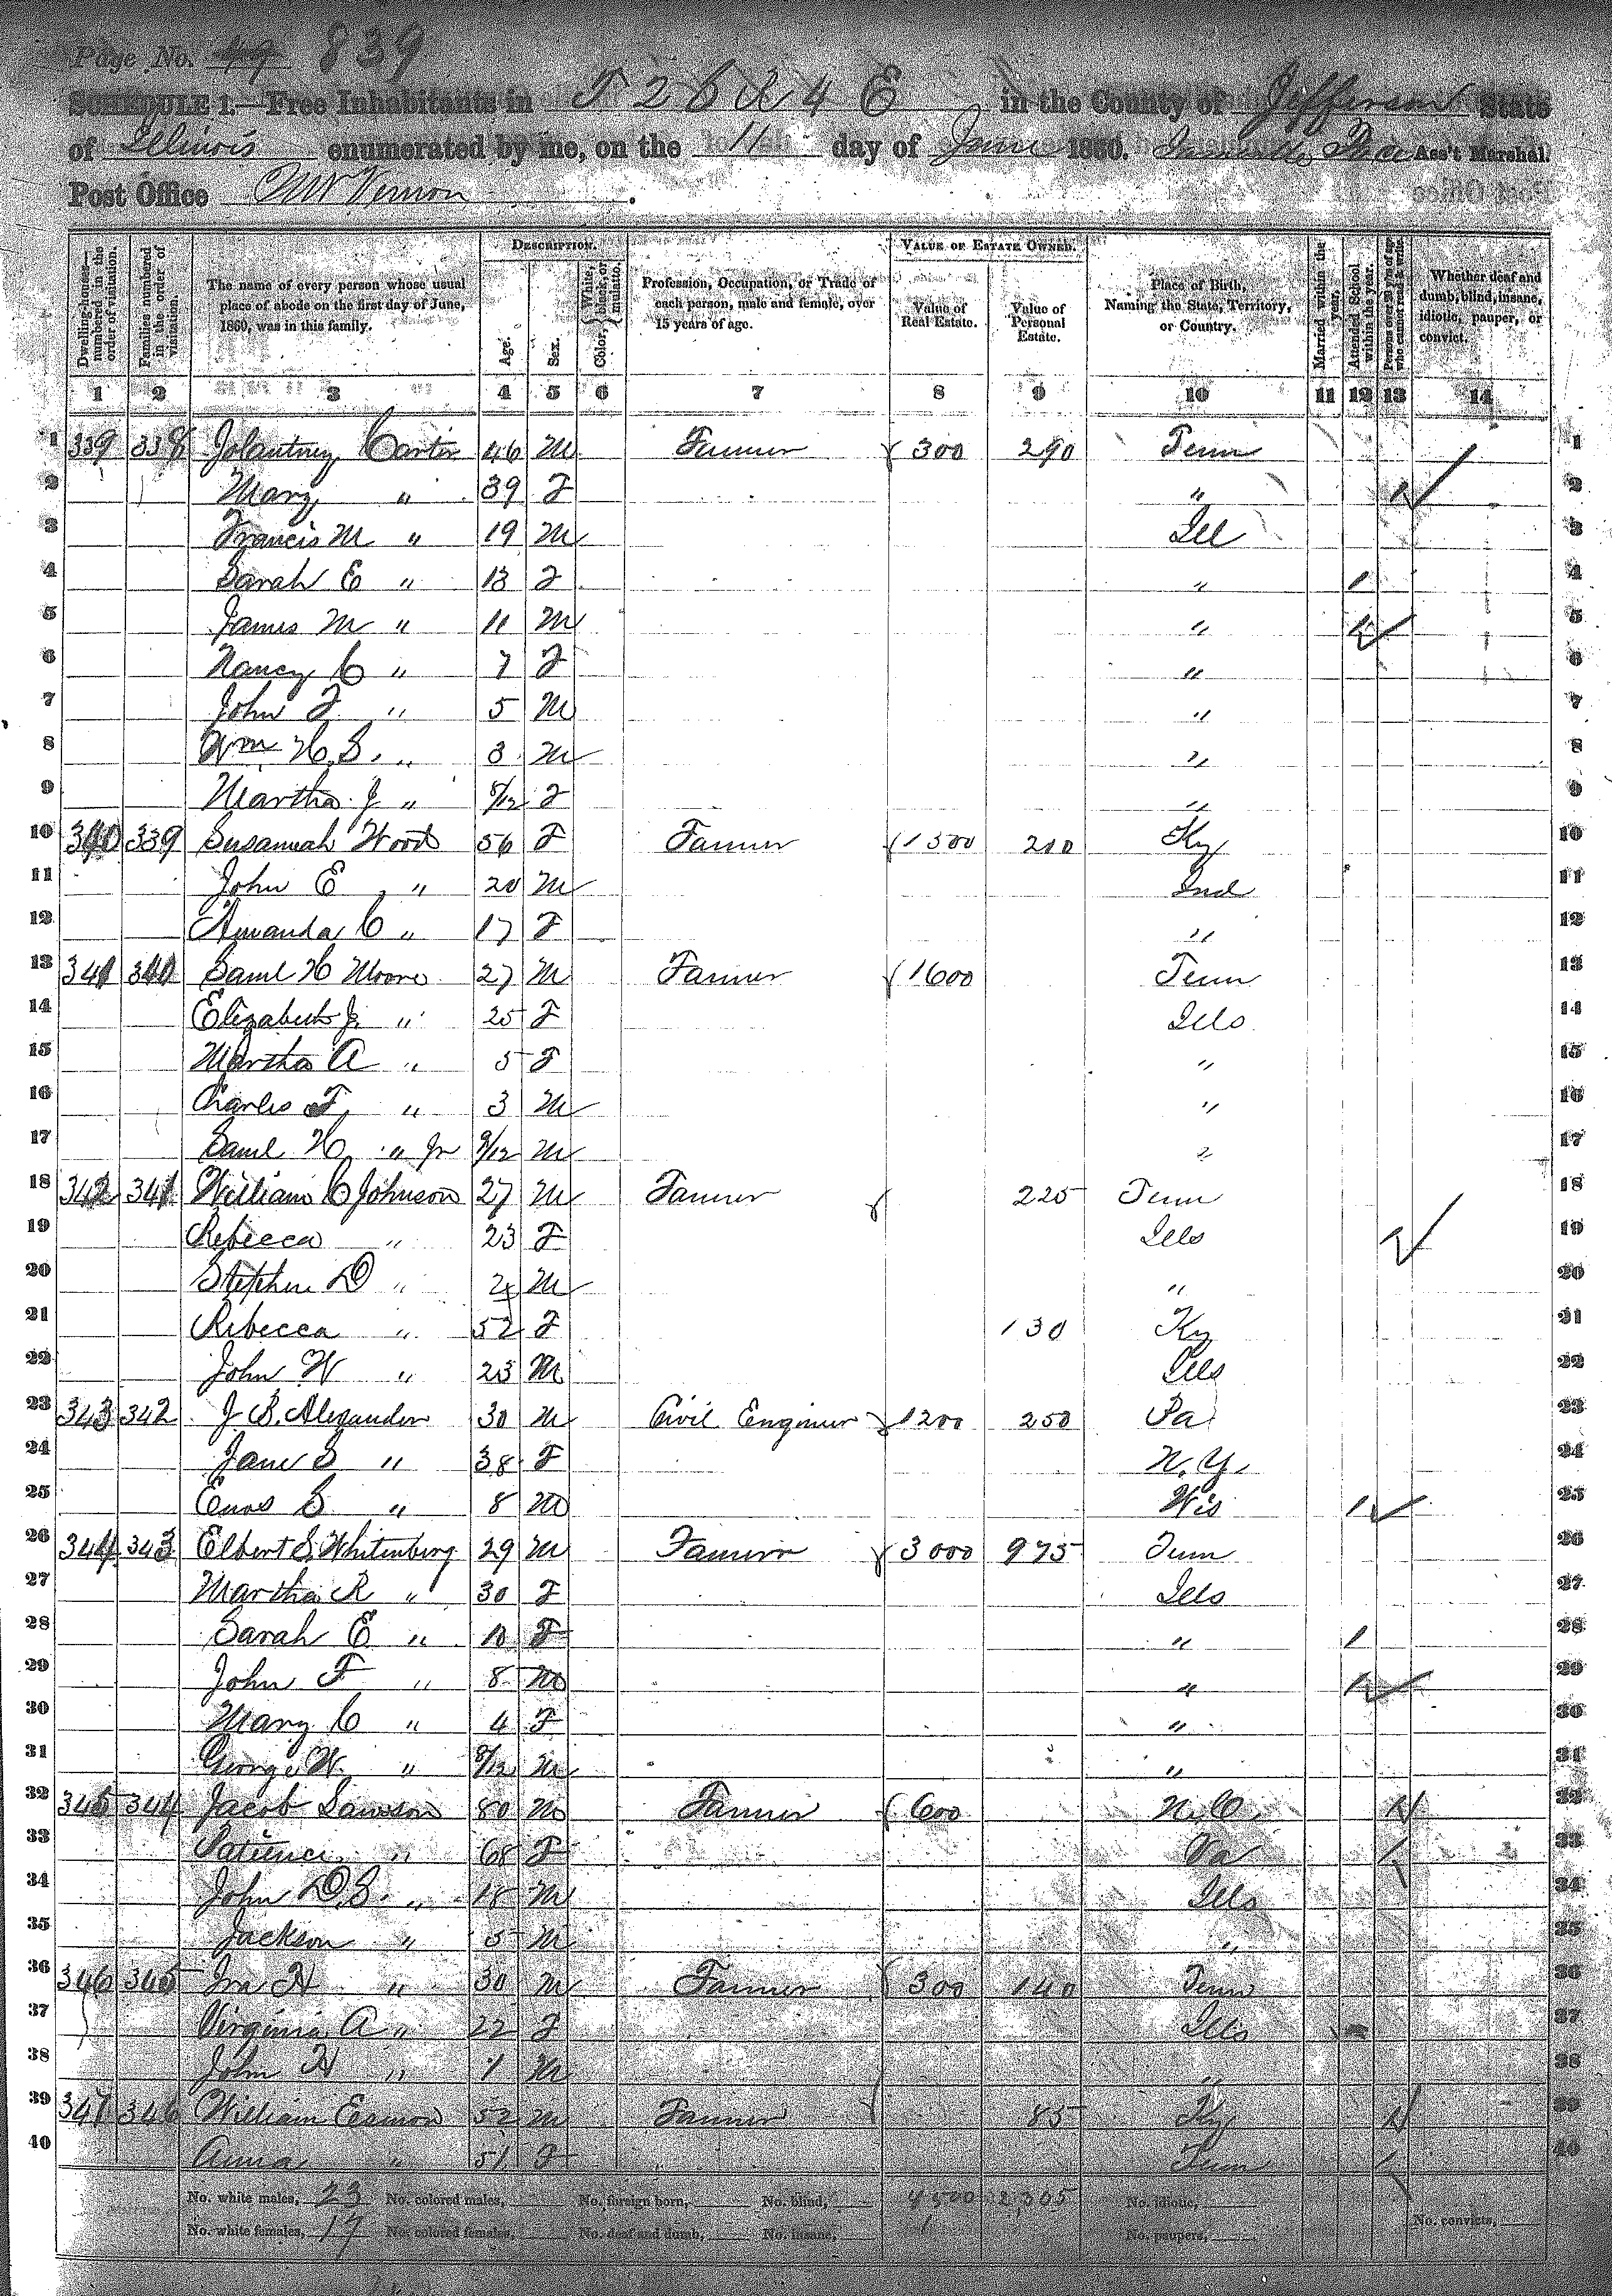 Page No. 49 839
SCHEDULE 1.—Free Inhabitants in T 2 S R 4 E in the County of Jefferson State
of Illinois enumerated by me, on the 11 day of June 1860. Ass't Marshal.
Post Office Mt Vernon
Dwelling-houses—numbered in the order of visitation. Families numbered in the order of visitation. The name of every person whose usual place of abode on the first day of June, 1860, was in this family. DESCRIPTION. Age. Sex. Color, {White, black, or mulatto. Profession, Occupation, or Trade of each person, male and female, over 15 years of age. VALUE OF ESTATE OWNED. Value of Real Estate. Value of Personal Estate. Place of Birth, Naming the State, Territory, or Country. Married within the year. Attended School within the year. Persons over 20 y'rs of age who cannot read & write. Whether deaf and dumb, blind, insane, idiotic, pauper, or convict.
1 2 3 4 5 6 7 8 9 10 11 12 13 14
1 339 338 Carter 46 M Farmer 300 290 Tenn 1
2 Mary " 39 F " 1 2
3 Francis M " 19 M Ill 3
4 Sarah E " 13 F " 1 4
5 James M " 11 M " 1 5
6 Nancy C " 7 F " 6
7 John F " 5 M " 7
8 Wm H. S. " 3 M " 8
9 Martha J " 8/12 F " 9
10 340 339 Susannah Wood 56 F Farmer 1500 210 Ky 10
11 John E " 20 M Ind 11
12 Amanda C " 17 F " 12
13 341 340 Saml H Moore 27 M Farmer 1600 Tenn 13
14 Elizabeth J. " 25 F Ills 14
15 Martha A " 5 F " 15
16 Charles F. " 3 M " 16
17 Saml H. " Jr 9/12 M " 17
18 342 341 William C Johnson 27 M Farmer 225 Tenn 18
19 Rebecca " 23 F Ills 1 19
20 Stephen D " 2 M " 20
21 Rebecca " 52 F 130 Ky 21
22 John W " 23 M Ills 22
23 343 342 J. S. Alexander 30 M Civil Engineer 1200 250 Pa 23
24 Jane S " 38 F N.Y. 24
25 Enos S " 8 M Wis 1 25
26 344 343 Elbert S. Whitenberg 29 M Farmer 3000 975 Tenn 26
27 Martha R " 30 F Ills 27
28 Sarah E " 10 F " 1 28
29 John F " 8 M " 1 29
30 Mary C " 4 F " 30
31 George W. " 8/12 M " 31
32 345 344 Jacob Lawson 80 M Farmer 600 N.C. 1 32
33 Patience " 68 F Va 1 33
34 John D. S. " 18 M Ills 34
35 Jackson " 5 M " 35
36 346 345 Ira H " 30 M Farmer 300 140 Tenn 36
37 Virginia A " 22 F Ills 37
38 John H " 1 M " 38
39 347 346 William Esmon 52 M Farmer 85 Ky 1 39
40 Anna " 51 F Tenn 1 40
No. white males, 23 No. colored males, No. foreign born, No. blind, 2,305 No. idiotic,
No. white females, 17 No. colored females, No. deaf and dumb, No. insane, No. paupers, No. convicts,